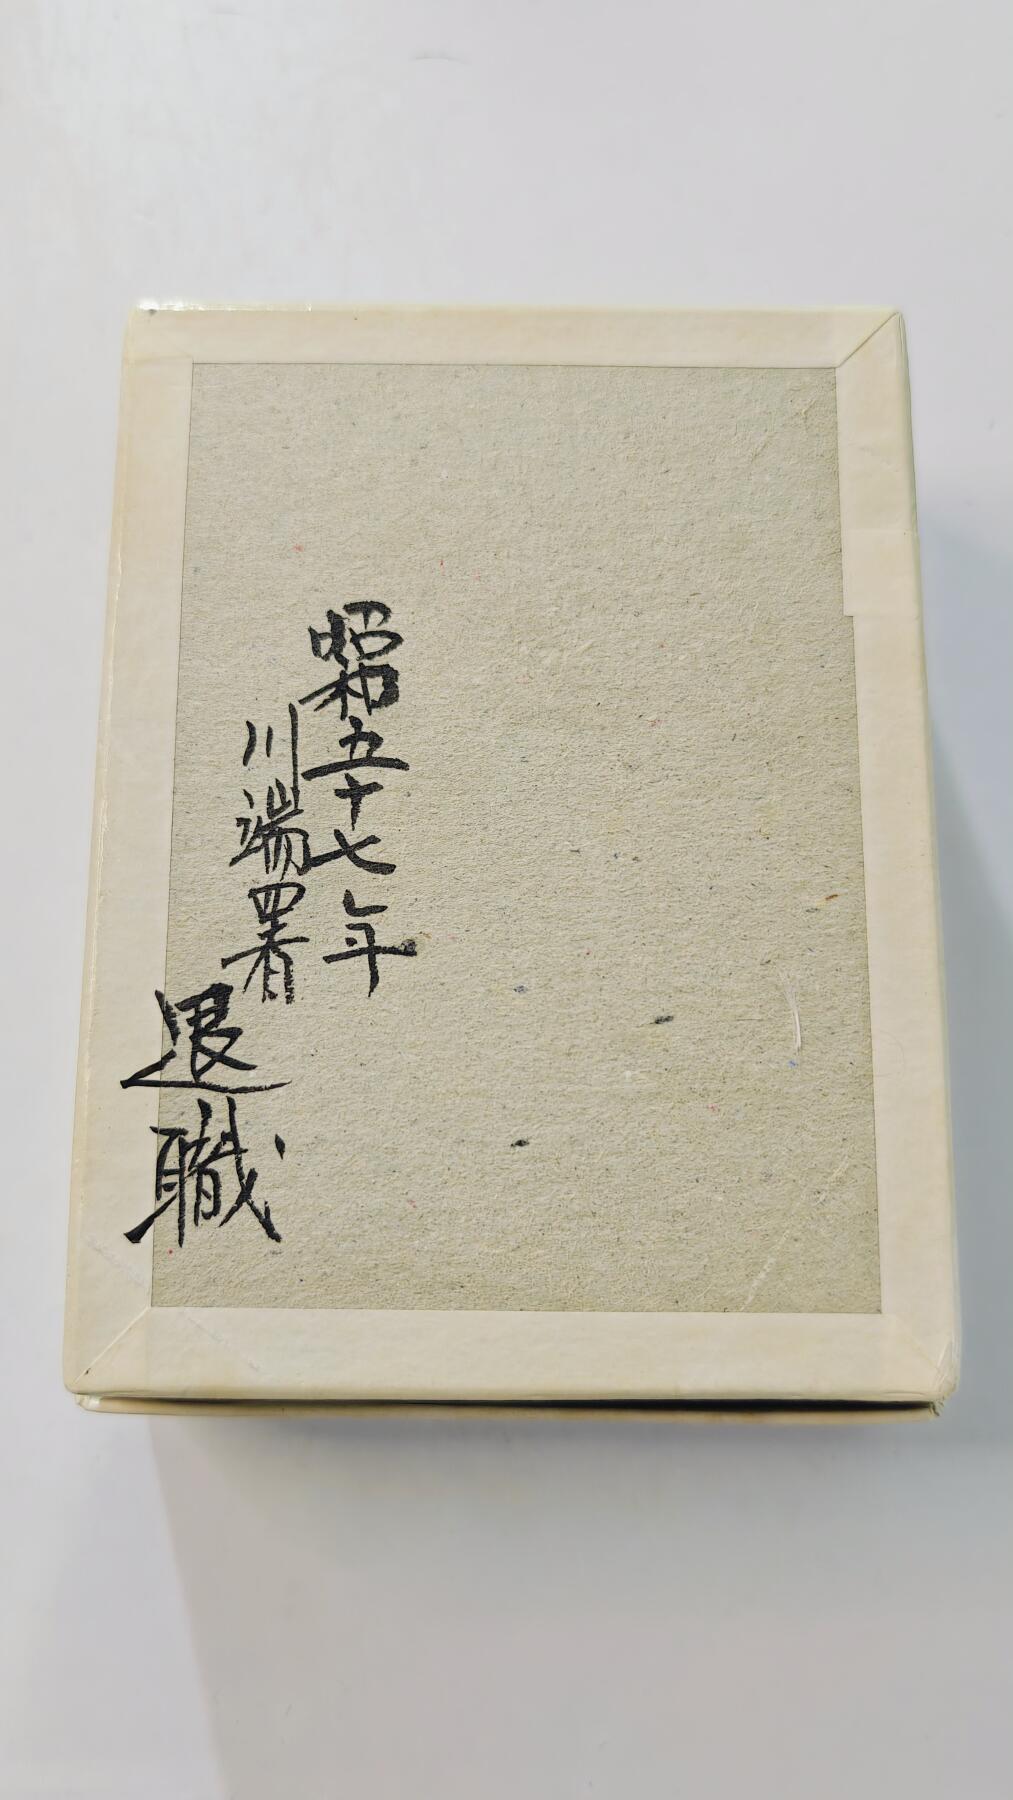 昭和五十七年
川端署
退職